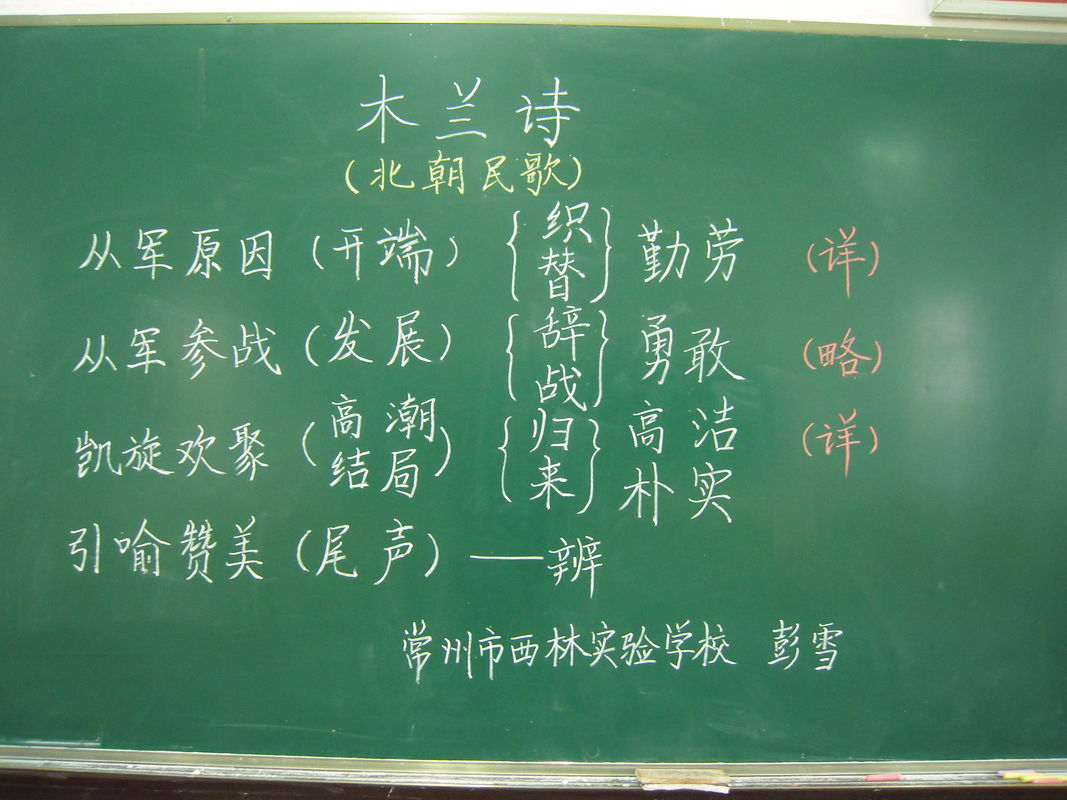 木兰诗
(北朝民歌)
从军原因 (开端) {织替} 勤劳 (详)
从军参战 (发展) {辞战} 勇敢 (略)
凯旋欢聚 (高潮结局) {归来} 高洁朴实 (详)
引喻赞美 (尾声) ——辨
常州市西林实验学校 彭雪